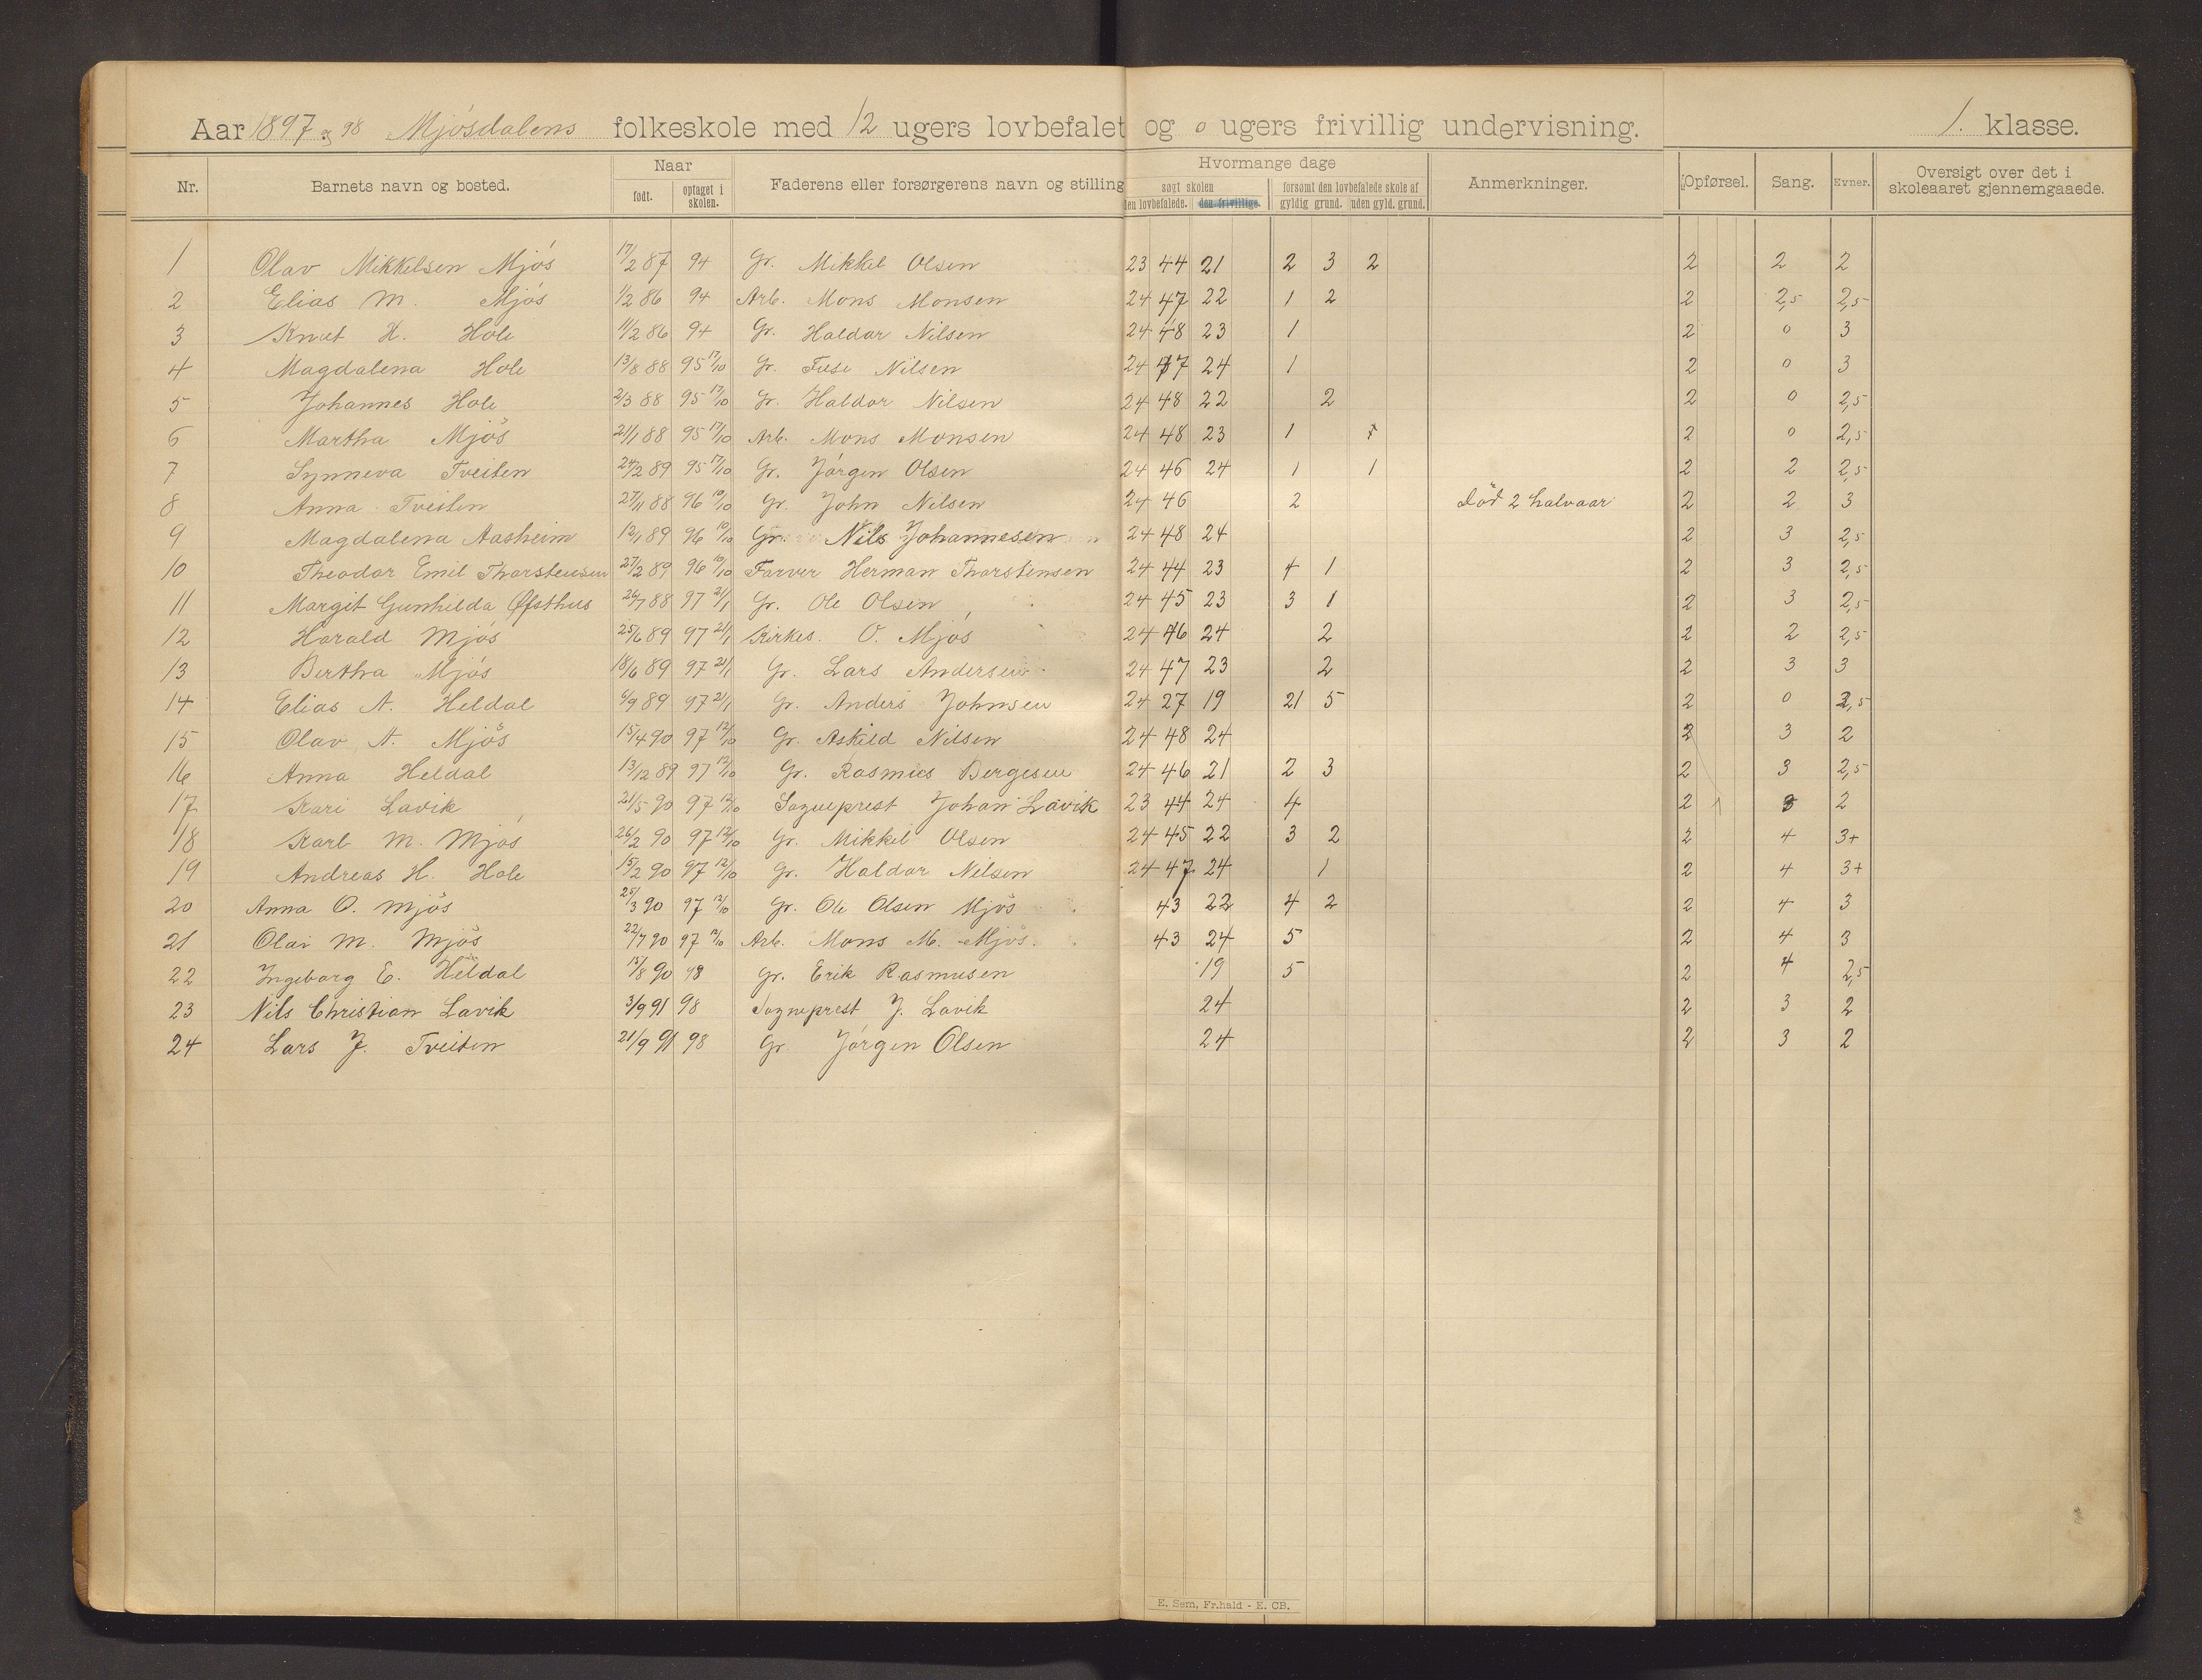 Aar 1897 og 98 Mjösdalens folkeskole med 12 ugers lovbefalet og 0 ugers frivillig undervisning. 1. klasse.
Nr. Barnets navn og bosted. Naar født. optaget i skolen. Faderens eller forsørgerens navn og stilling Hvormange dage søgt skolen den lovbefalede. den frivillige. forsømt den lovbefalede skole af gyldig grund. uden gyld. grund. Anmerkninger. Opførsel. Sang. Evner. Oversigt over det i skoleaaret gjennemgaaede.
1 Olav Mikkelsen Mjös 17/2 87 94 Gr. Mikkel Olsen 23 44 21 2 3 2 2 2 2
2 Elias M. Mjös 1/2 86 94 Arb. Mons Monsen 24 47 22 1 2 2 2,5 2,5
3 Knut H. Hole 11/2 86 94 Gr. Haldor Nilsen 24 48 23 1 2 0 3
4 Magdalena Hole 13/8 88 95 17/10 Gr. Fuse Nilsen 24 47 24 1 2 0 3
5 Johannes Hole 2/3 88 95 17/10 Gr. Haldor Nilsen 24 48 22 2 2 0 2,5
6 Martha Mjös 21/1 88 95 17/10 Arb. Mons Monsen 24 48 23 1 2 0 2,5
7 Synneva Tveiten 24/2 89 95 17/10 Gr. Jörgen Olsen 24 46 24 1 1 2 2 2,5
8 Anna Tveiten 27/11 88 96 10/10 Gr. John Nilsen 24 46 2 Död 2 halvaar 2 2 3
9 Magdalena Aasheim 12/1 89 96 10/10 Gr. Nils Johannesen 24 48 24 2 3 2,5
10 Theodor Emil Thorstensen 27/2 89 96 10/10 Farver Herman Thorstensen 24 44 23 4 1 2 3 2,5
11 Margit Gunhilda Øfsthus 26/7 88 97 21/1 Gr. Ole Olsen 24 45 23 3 1 2 3 2,5
12 Harald Mjös 25/6 89 97 21/1 Kirkes. O. Mjös 24 46 24 2 2 2 2,5
13 Bertha Mjös 18/6 89 97 21/1 Gr. Lars Andersen 24 47 23 2 2 3 3
14 Elias A. Heldal 6/9 89 97 21/1 Gr. Anders Johnsen 24 27 19 21 5 2 0 2,5
15 Olav A. Mjös 15/4 90 97 12/10 Gr. Askild Nilsen 24 48 24 2 3 2
16 Anna Heldal 13/12 89 97 12/10 Gr. Rasmus Bergesen 24 46 21 2 3 2 3 2,5
17 Kari Lavik 21/5 90 97 12/10 Sogneprest Johan Lavik 23 44 24 4 2 3 2
18 Karl M. Mjös 26/2 90 97 12/10 Gr. Mikkel Olsen 24 45 22 3 2 2 4 3+
19 Andreas H. Hole 15/2 90 97 12/10 Gr. Haldor Nilsen 24 47 24 1 2 4 3+
20 Anna O. Mjös 25/3 90 97 12/10 Gr. Ole Olsen Mjös 43 22 4 2 2 4 3
21 Olai M. Mjös 22/7 90 97 12/10 Arb. Mons M. Mjös. 43 24 5 2 4 3
22 Ingeborg E. Heldal 15/8 90 98 Gr. Erik Rasmusen 19 5 2 4 2,5
23 Nils Christian Lavik 3/9 91 98 Sogneprest J. Lavik 24 2 3 2
24 Lars J. Tveiten 21/9 91 98 Gr. Jörgen Olsen 24 2 3 2
E. Sem, Fr.hald - E. CB.